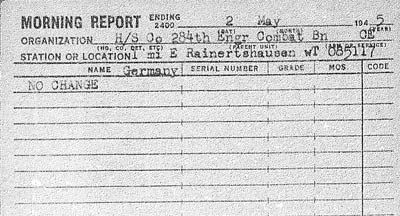 MORNING REPORT ENDING 2400 2 May 1945
(DAY) (MONTH) (YEAR)
ORGANIZATION H/S Co 284th Engr Combat Bn CE
(HQ, CO, DET, ETC) (PARENT UNIT) (ARM OR SERVICE)
STATION OR LOCATION 1 mi E Rainertshausen wT 085117
NAME Germany SERIAL NUMBER GRADE MOS. CODE
NO CHANGE